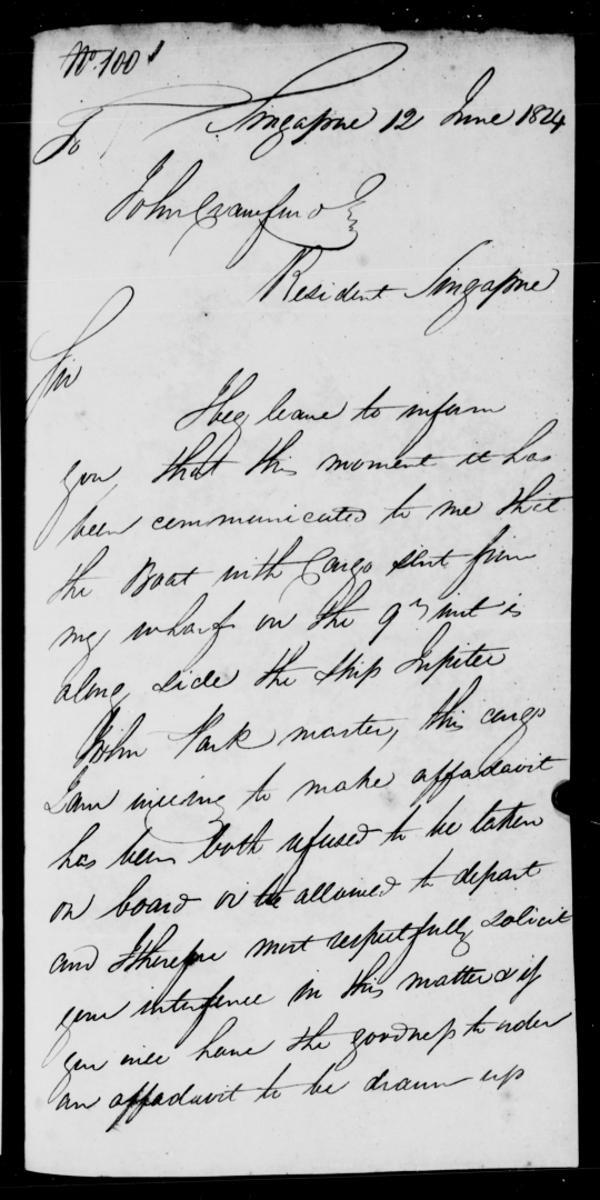 No. 100
Singapore 12 June 1824
To
John Crawfurd Esq
Resident Singapore
Sir
I beg leave to inform
you, that this moment it has
been communicated to me that
the Boat with Cargo sent from
my wharf on the 9th inst is
along side the Ship Jupiter
John Park master, this cargo
I am willing to make affadavit
has been both refused to be taken
on board or be allowed to depart
and I therefore most respectfully solicit
your interference in this matter & if
you will have the goodness to order
an affadavit to be drawn up